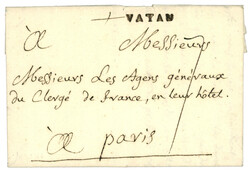 VATAN
à Messieurs
Messieurs Les Agens généraux
du Clergé de france, en leur hôtel.
à paris